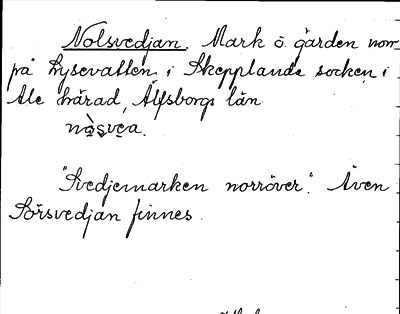 Nolsvedjan. Mark ö. gården norr
på Lysevatten, i Skepplanda socken i
Ale härad, Älfsborgs län

"Svedjemarken norröver." Även
Sörsvedjan finnes.